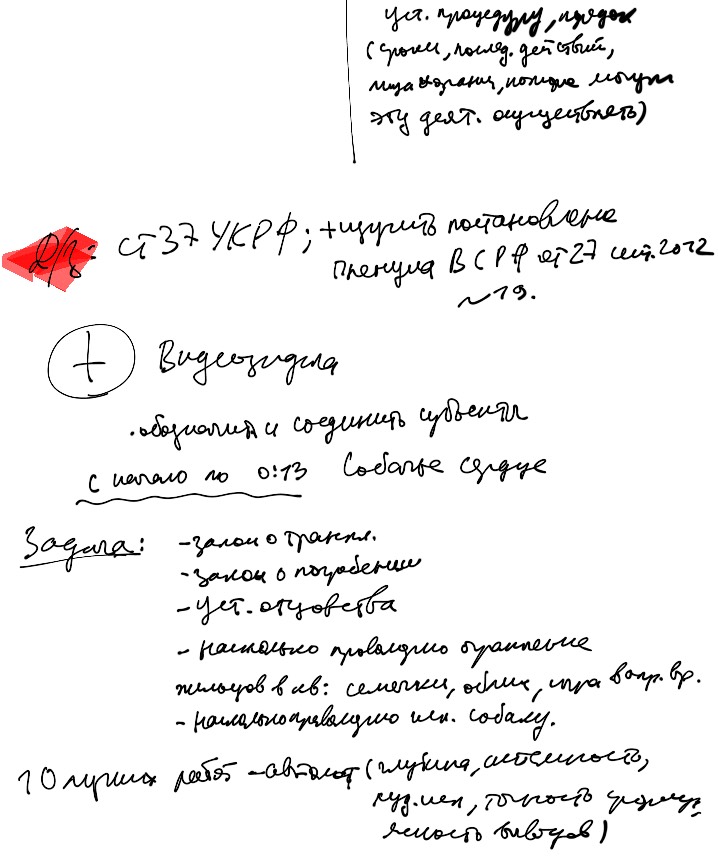 уст. процедуру, порядок
(сроки, послед. действий,
органы, которые могут
эту деят. осуществлять)
Д/з: ст 37 УК РФ; + изучить постановление
Пленума ВС РФ от 27 сент. 2012
№ 19.
+ Видеозадача
. обозначить и соединить субъекты
с начало по 0:13 Собачье сердце
Задача: - закон о транспл.
- закон о погребении
- уст. отцовства
- насколько правомерно ограничение
жильцов в кв: семечки, обыск, игра в опр. вр.
- насколько правомерно исп. собаку.
10 лучших работ - автомат (глубина, системность,
точность формул.,
ясность выводов)